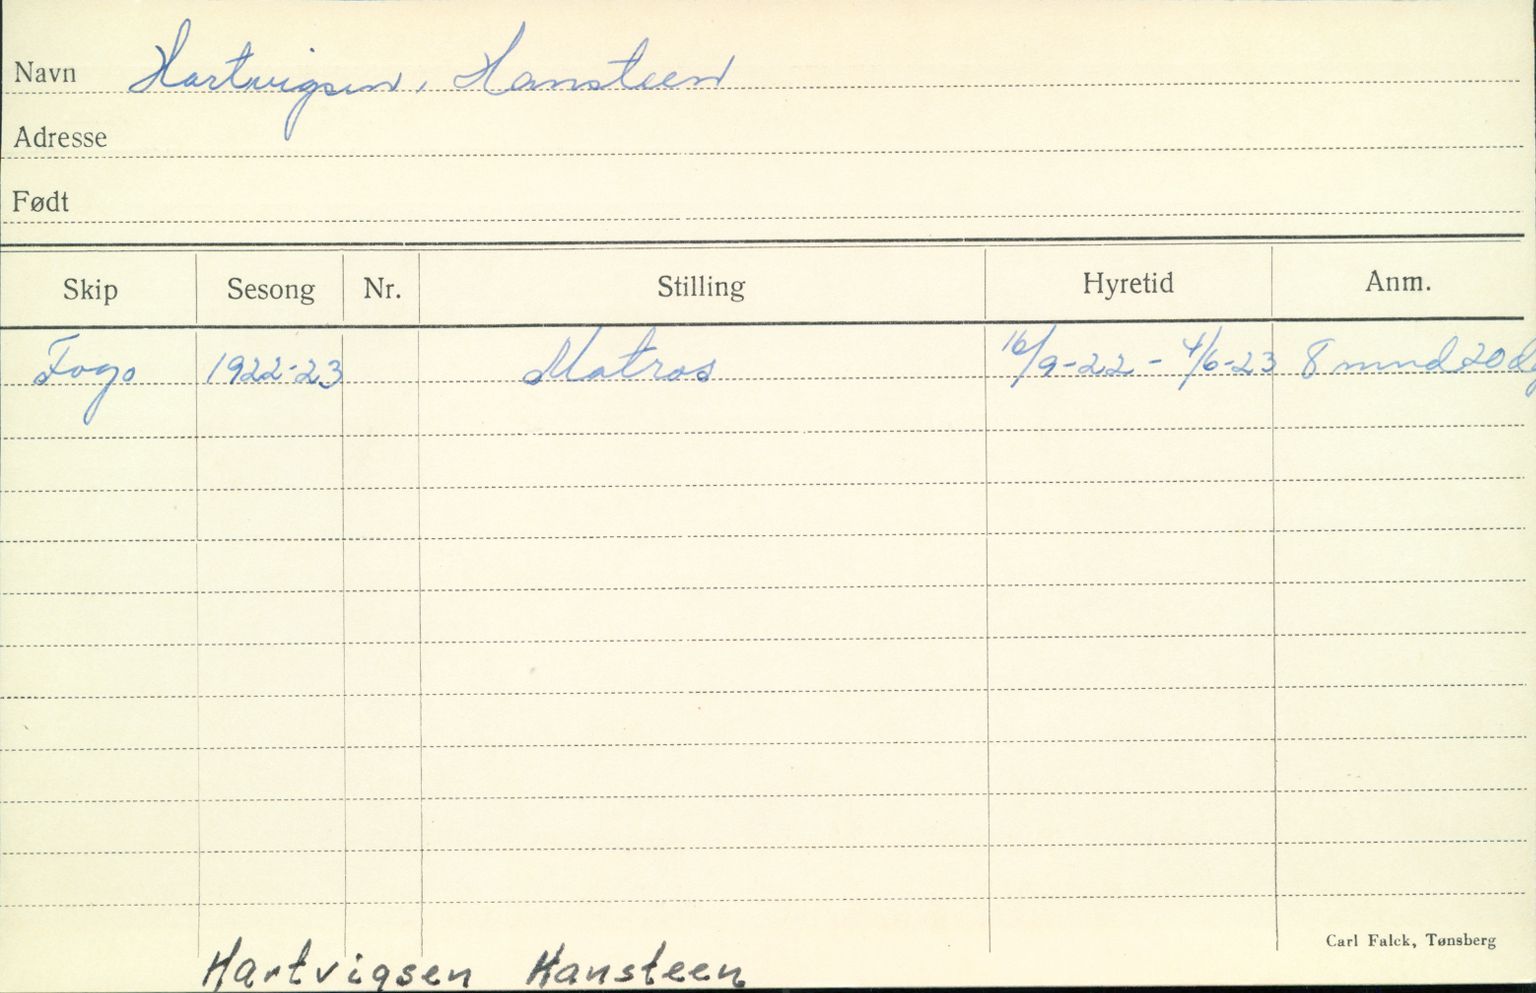 Navn Hartvigsen, Hansteen
Adresse
Født
Skip Sesong Nr. Stilling Hyretid Anm.
Fogo 1922-23 Matros 16/9-22 - 4/6-23 8 mnd 20 dg
Carl Falck, Tønsberg
Hartvigsen Hansteen